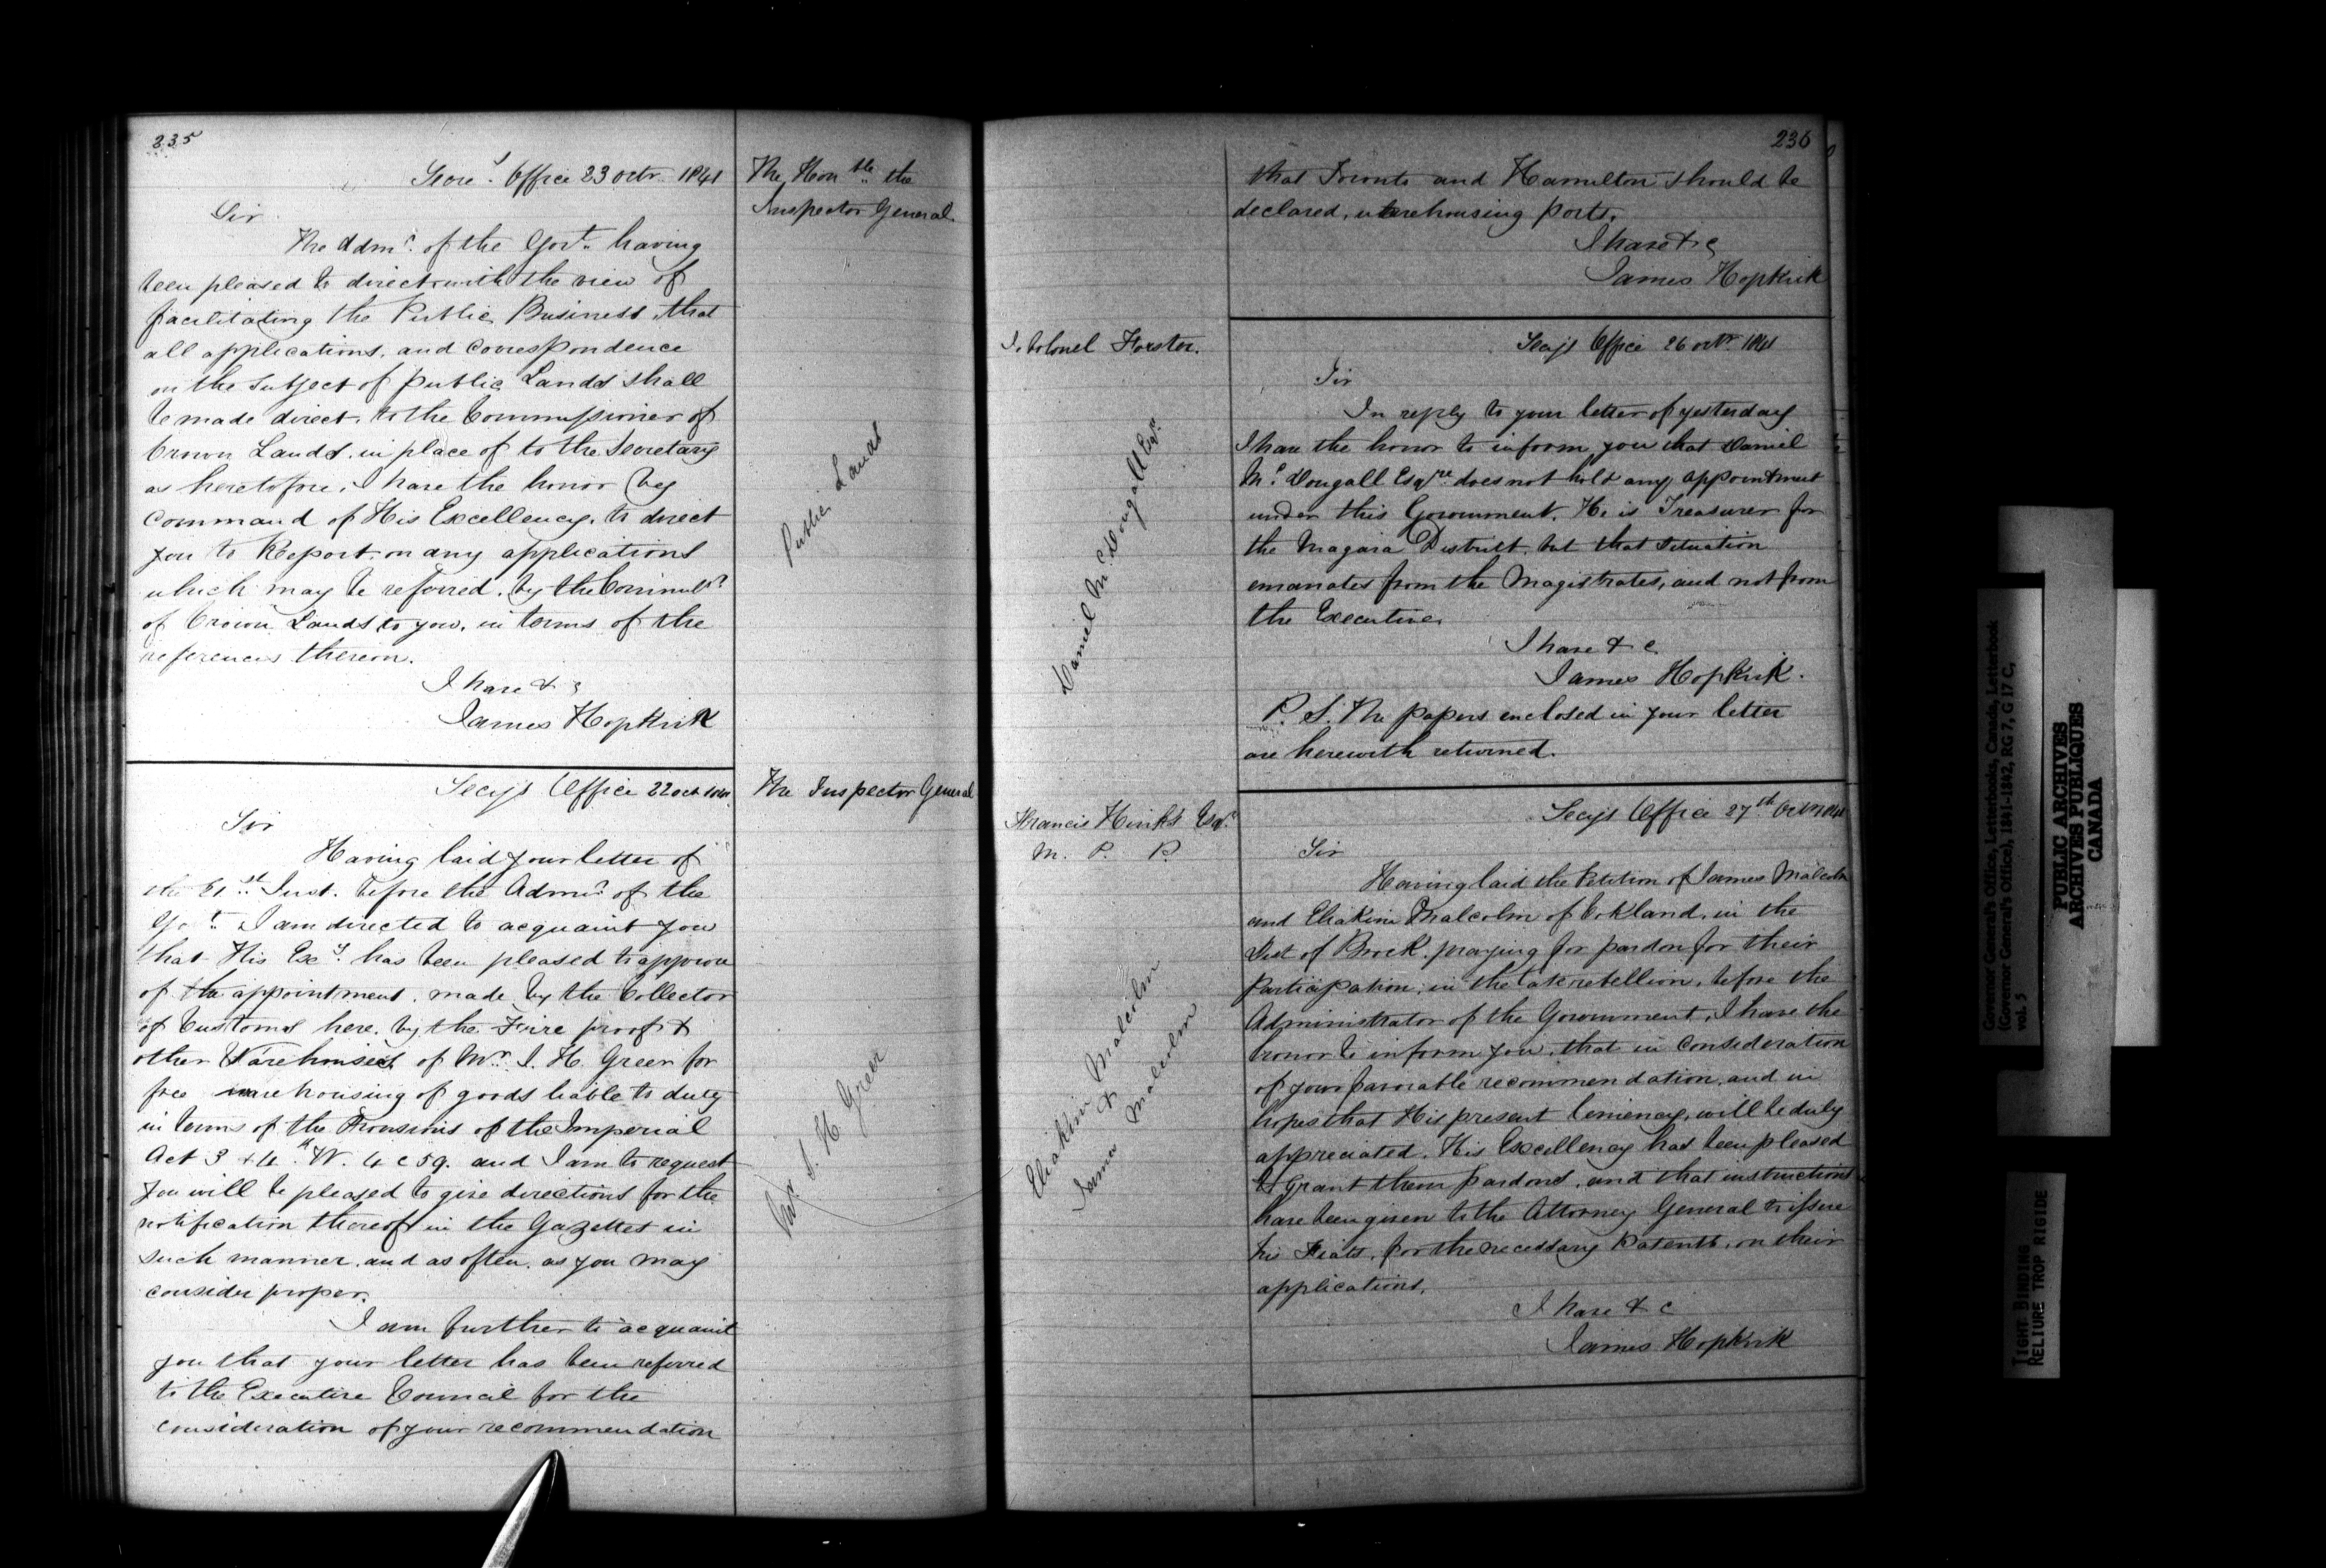 235
Secry Office 23 Octr 1841
The Honble the
Inspector General
Sir
The Admr. of the Govt. having
been pleased to direct with the view of
facilitating the Public Business, that
all applications, and correspondence
on the subject of public Lands shall
be made direct, to the Commissioner of
Crown Lands, in place of to the Secretary
as heretofore, I have the honor by
command of His Excellency, to direct
you to Report on any applications
which may be referred, by the Commissr
of Crown Lands to you, in terms of the
references thereon.
I have & c
James Hopkirk
Public Lands
Secys Office 22 Oct 1841
The Inspector General
Sir
Having laid your letter of
the 21st Inst. before the Admr. of the
Govt. I am directed to acquaint you
that His Excy. has been pleased to approve
of the appointment, made by the Collector
of Customs here, by the Fire proof &
other Warehouses of Mr. I. H. Greer for
free warehousing of goods liable to duty
in terms of the Provisions of the Imperial
Act 3 & 4th W. 4 c 59. and I am to request
you will be pleased to give directions for the
notification thereof in the Gazettes in
such manner, and as often, as you may
consider proper.
I am further to acquaint
you that your letter has been referred
to the Executive Council for the
consideration of your recommendation
I. H. Greer
236
that Toronto and Hamilton should be
declared, warehousing ports.
I have & c
James Hopkirk
Colonel Forster.
Secys Office 26 Octr. 1841
Sir
In reply to your letter of yesterday
I have the honor to inform you that Daniel
Mc. Dougall Esqre does not hold any appointment
under this Government. He is Treasurer for
the Niagara District, but that situation
emanates from the Magistrates, and not from
the Executive.
I have & c
James Hopkirk.
P. S. The papers enclosed in your letter
are herewith returned.
Daniel Mc. Dougall Esqr.
Francis Hinks Esqr.
M. P. P.
Secys Office 27th Octr 1841
Sir
Having laid the Petition of James Malcolm
and Eliakim Malcolm of Oakland, in the
Dist of Brock, praying for pardon for their
participation, in the late rebellion, before the
Administrator of the Government, I have the
honor to inform you, that in consideration
of your favorable recommendation, and in
hopes that His present leniency, will be duly
appreciated, His Excellency has been pleased
to grant them pardons, and that instructions
have been given to the Attorney General to issue
his Fiats, for the necessary Patents, on their
applications.
I have & c
James Hopkirk
Eliakim Malcolm
&
James Malcolm
Governor General's Office, Letterbooks, Canada, Letterbook
(Governor General's Office), 1841-1842, RG 7, G 17 C,
vol. 5
PUBLIC ARCHIVES
ARCHIVES PUBLIQUES
CANADA
TIGHT BINDING
RELIURE TROP RIGIDE